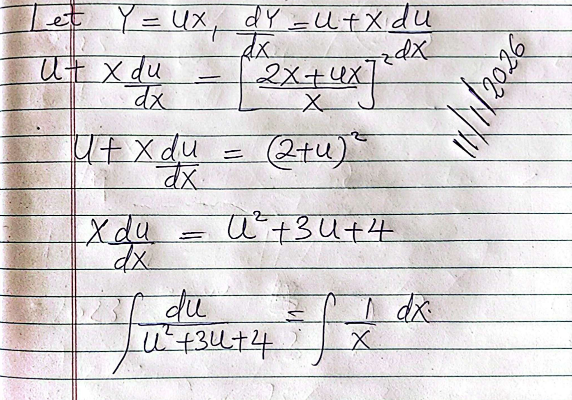 Let Y = ux, dY/dx = u + x du/dx
u + x du/dx = [2x+ux/x]²
11/1/2026
u + x du/dx = (2+u)²
x du/dx = u² + 3u + 4
∫ du/u²+3u+4 = ∫ 1/x dx.